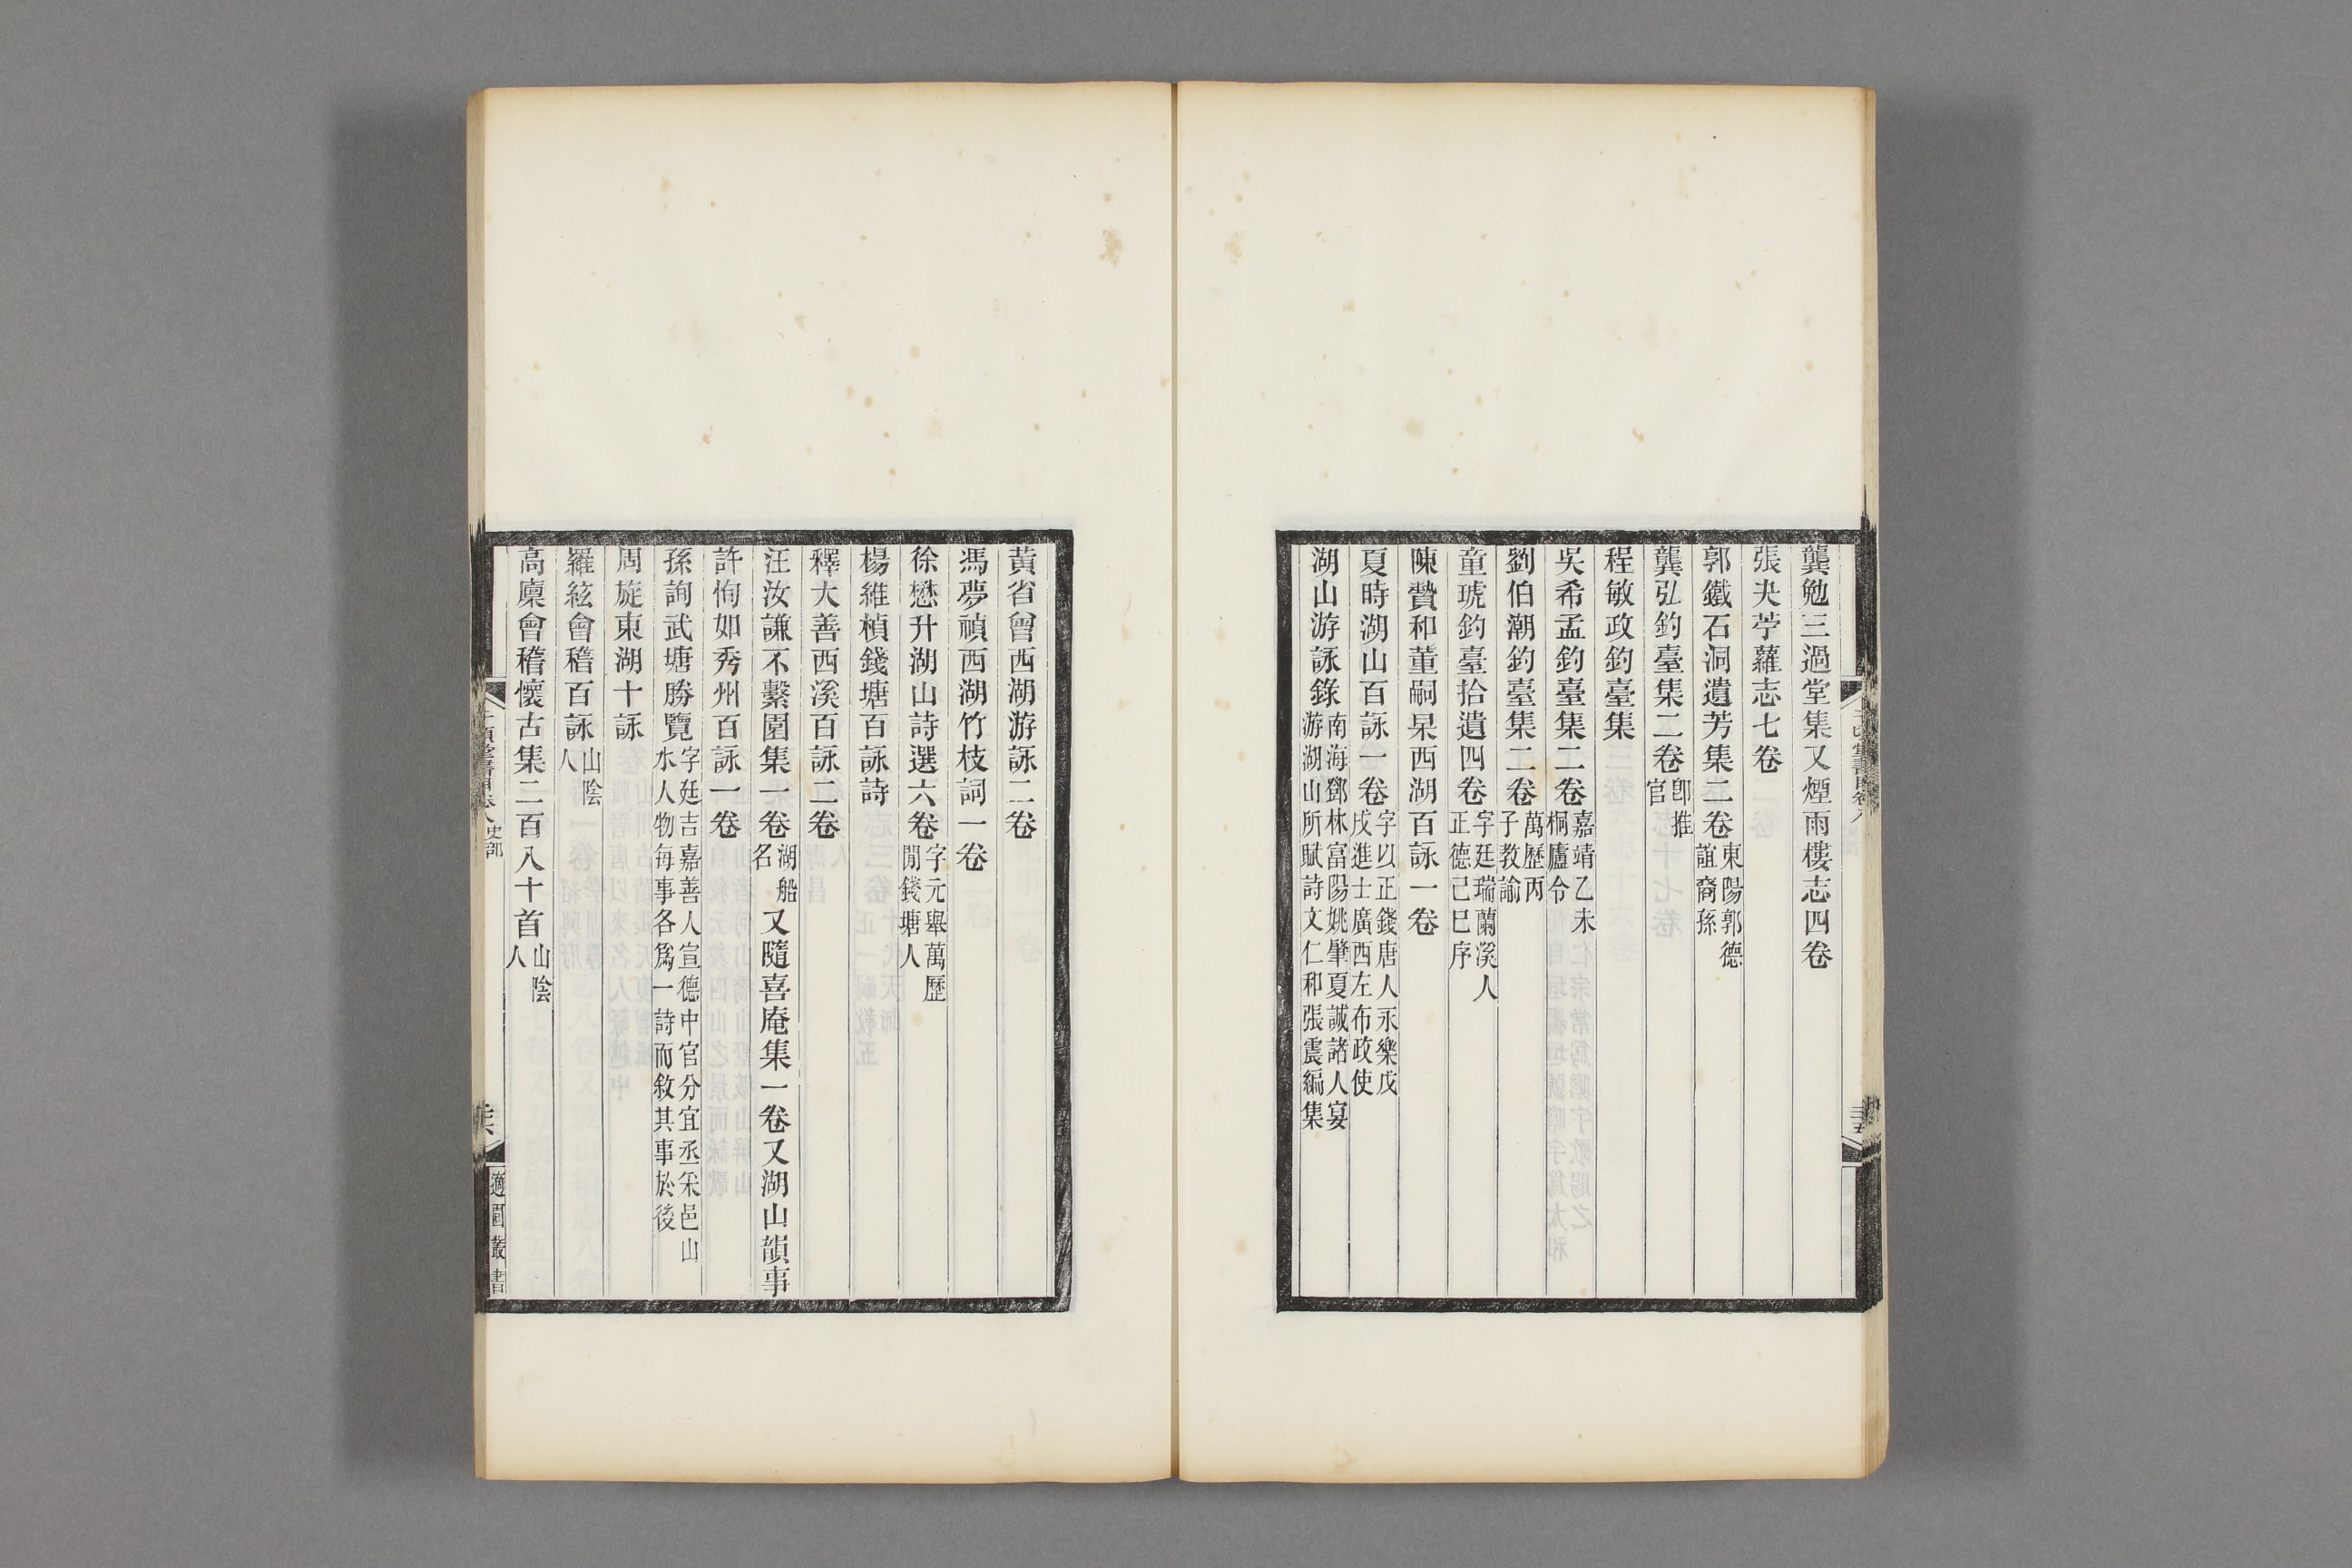 龔勉三過堂集又煙雨樓志四卷
張夬苧蘿志七卷
郭鐵石洞遺芳集二卷東陽郭德誼裔孫
龔弘釣臺集二卷卽推官
程敏政釣臺集
吳希孟釣臺集二卷嘉靖乙未桐廬令
劉伯潮釣臺集二卷萬歷丙子教諭
童琥釣臺拾遺四卷字廷瑞蘭溪人正德己巳序
陳贄和董嗣杲西湖百詠一卷
夏時湖山百詠一卷字以正錢唐人永樂戊戌進士廣西左布政使
湖山游詠錄南海鄧林富陽姚肇夏誠諸人宴游湖山所賦詩文仁和張震編集
黃省曾西湖游詠二卷
馮夢禎西湖竹枝詞一卷
徐懋升湖山詩選六卷字元舉萬歷閒錢塘人
楊維楨錢塘百詠詩
釋大善西溪百詠二卷
汪汝謙不繫園集一卷湖船名又隨喜庵集一卷又湖山韻事
許恂如秀州百詠一卷
孫詢武塘勝覽字廷吉嘉善人宣德中官分宜丞采邑山水人物每事各爲一詩而敘其事於後
周旋東湖十詠
羅紘會稽百詠山陰人
高廩會稽懷古集二百八十首山陰人
適園叢書